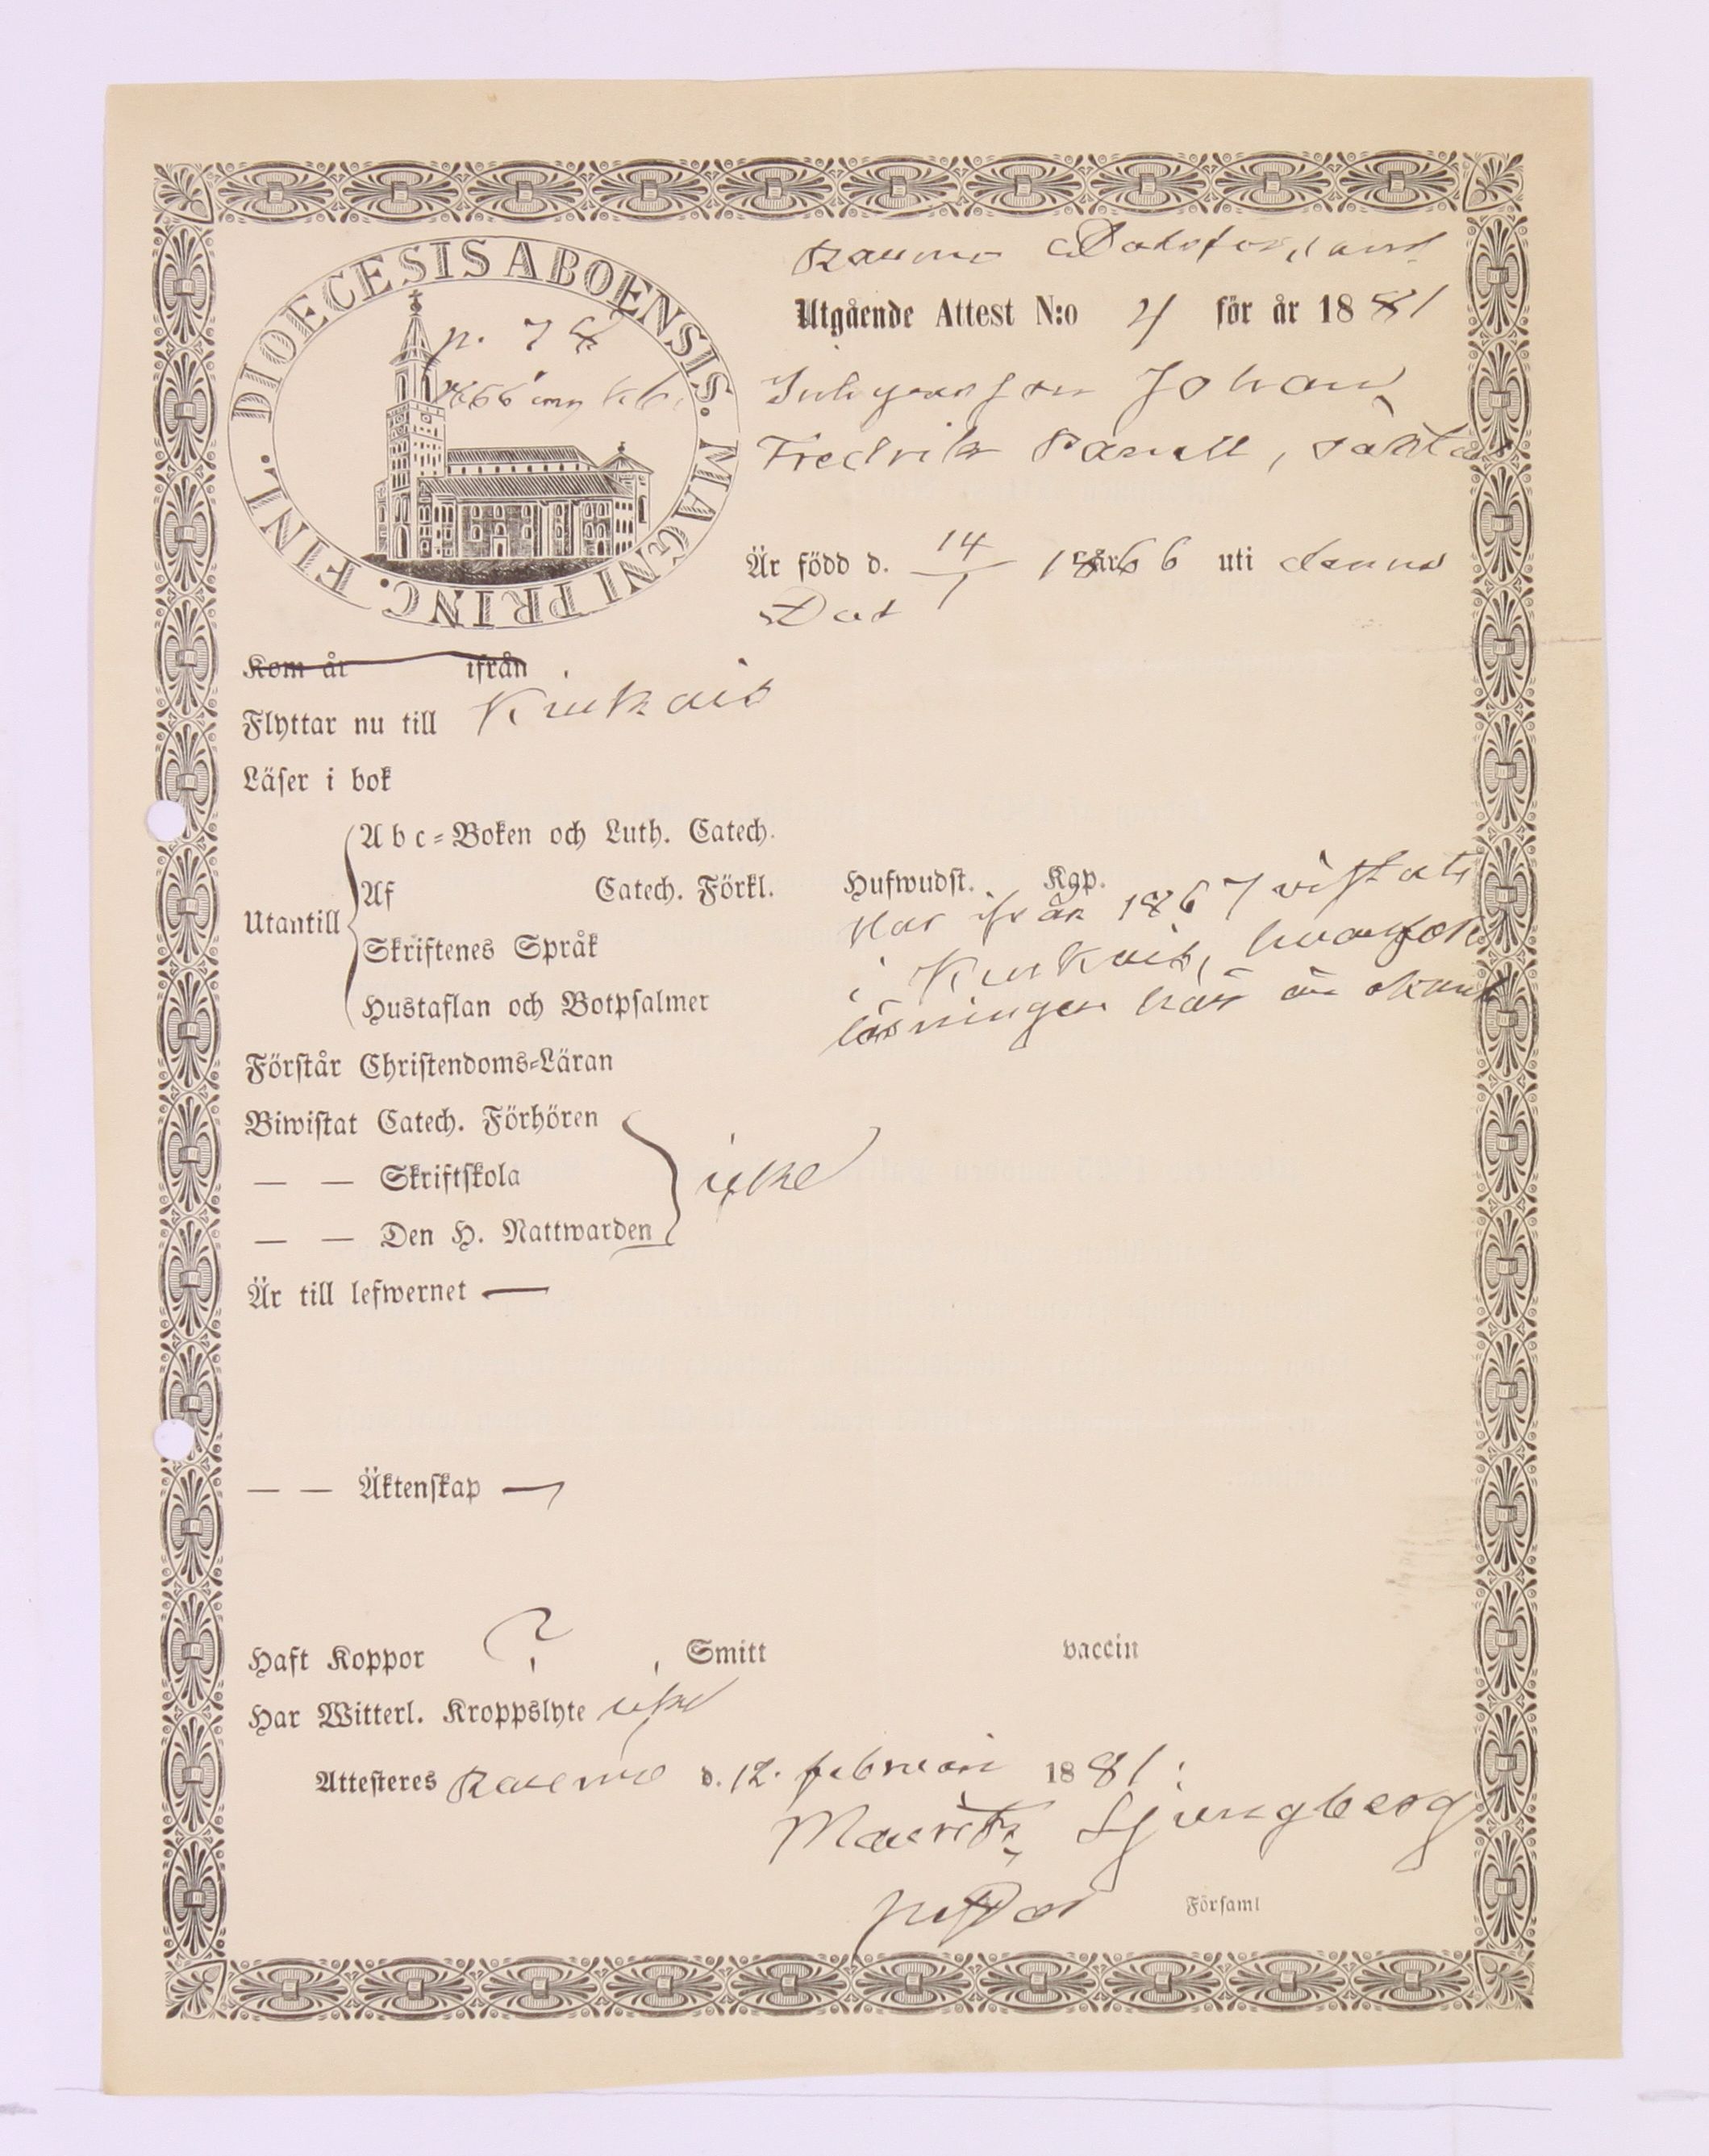 DIOECESIS ABOENSIS. MAGNI PRINC. FINL.
p. 74
Raumo
Utgående Attest N:o 4 för år 1881
Johan
Fredrik
Är född d. 14/1 år 1866 uti denna
Kom år ifrån
Flyttar nu till Kiukais
Läser i bok
Utantill
Abc-Boken och Luth. Catech.
Af Catech. Förkl. Hufwudst. Kgp.
Skriftenes Språk
Hustaflan och Botpsalmer
Har ifrån 1867 vistats
i Kiukais, hvarför
läsningen här är okänd
Förstår Christendoms-Läran
Biwistat Catech. Förhören
— — Skriftskola icke
— — Den H. Nattwarden
Är till lefwernet —
— — Äktenskap —
Haft Koppor ? , Smitt vaccin
Har Witterl. Kroppslyte icke
Attesteres Raumo d. 12. februari 1881:
Mauritz Ljungberg
Församl